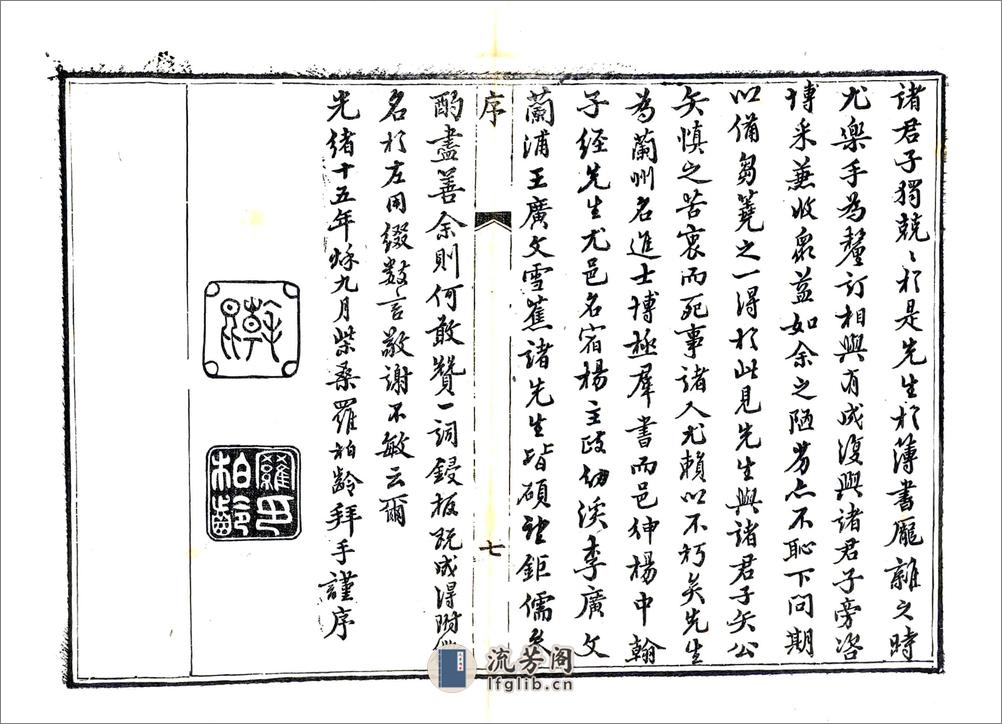 諸君子獨兢〻於是先生於薄書龐雜之時
尤樂手為釐訂相與有成復與諸君子旁咨
博采兼收眾益如余之陋劣亦不恥下問期
以備芻蕘之一得於此見先生與諸君子矢公
矢慎之苦衷而死事諸人尤賴以不朽矣先生
為蘭州名進士博極羣書而邑紳楊中翰
子經先生尤邑名宿楊主政幼溪李廣文
蘭浦王廣文雪蕉諸先生皆碩望鉅儒
序
七
酌盡善余則何敢贊一詞鋟板既成得附
名於左用綴數言敬謝不敏云爾
光緒十五年秋九月柴桑羅柏齡拜手謹序
羅印
柏齡
流芳阁
lfglib.cn